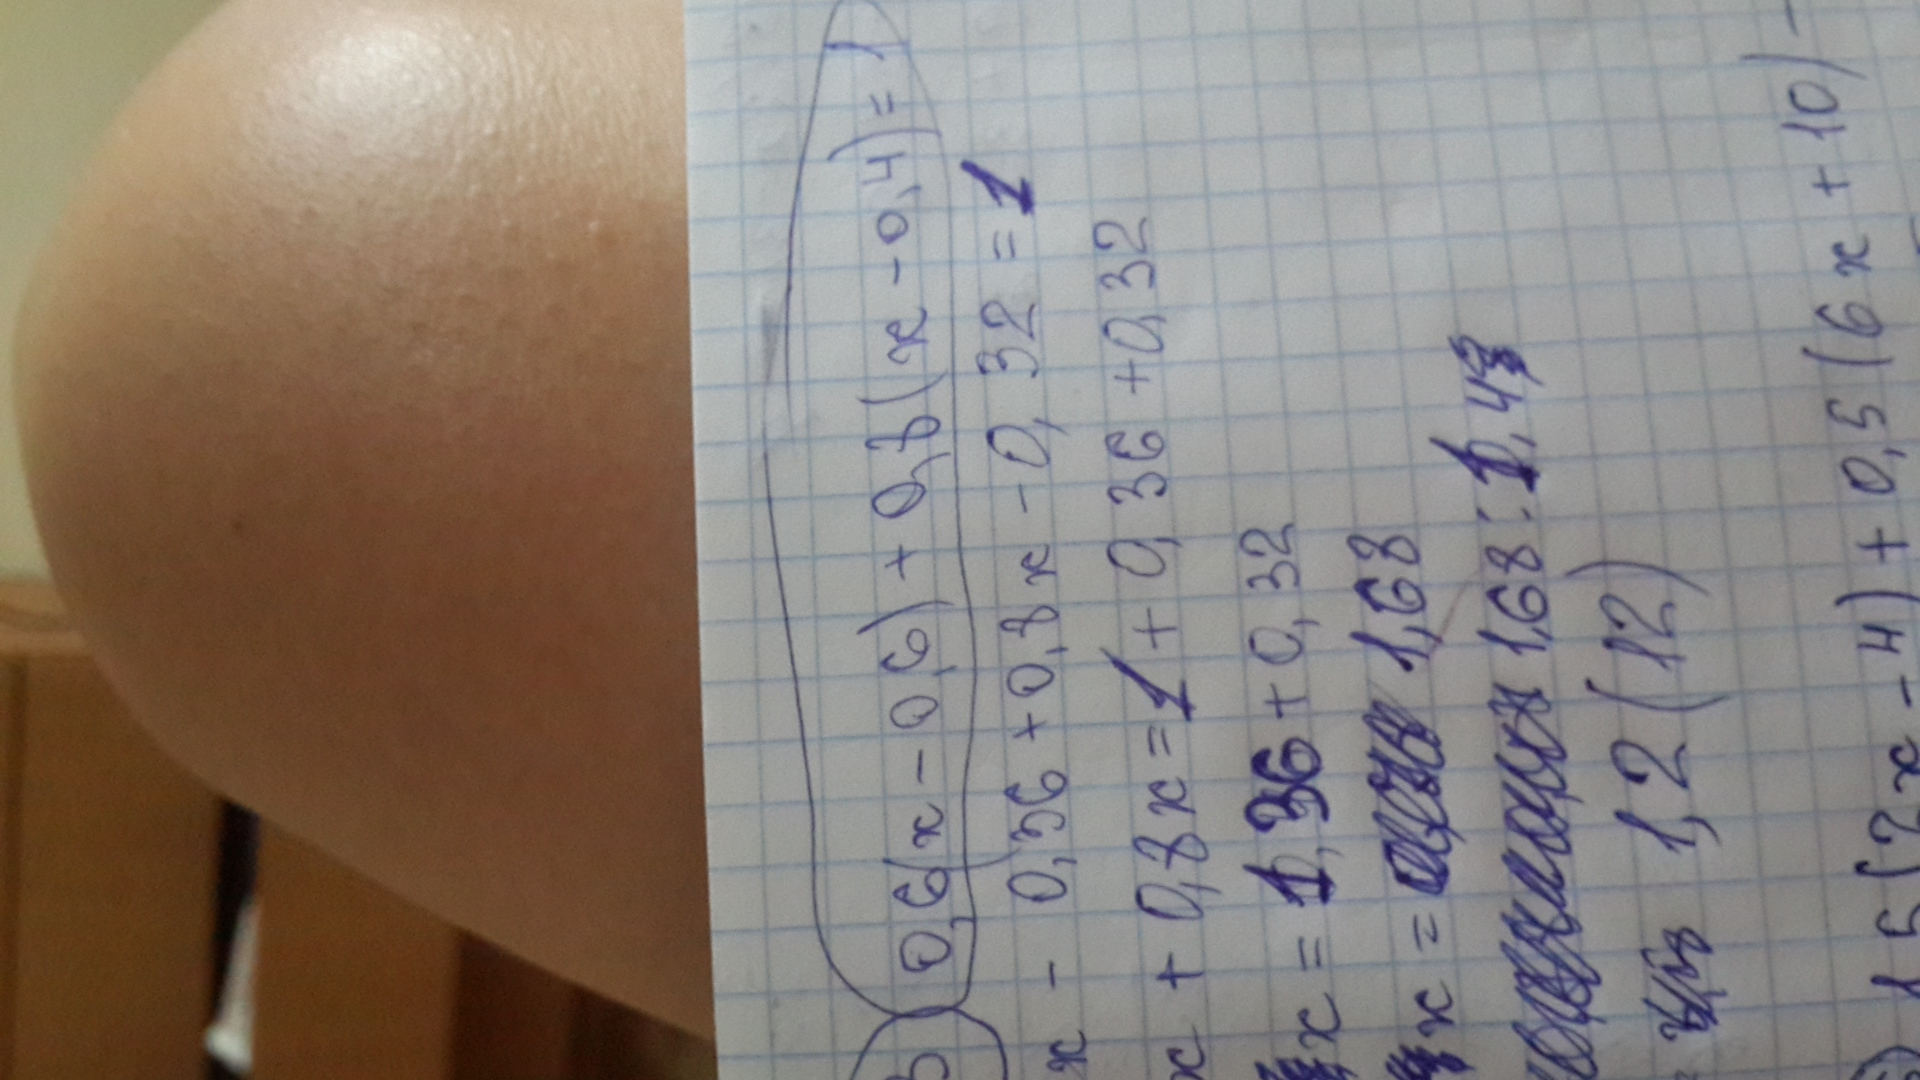 0,6(x-0,6)+0,8(x-0,4)=1
x - 0,36+0,8x-0,32=1
x + 0,8x=1+0,36+0,32
x = 1,36+0,32
x = 1,68
1,68:1,4
1,2(12)
5(2x-4)+0,5(6x+10)-